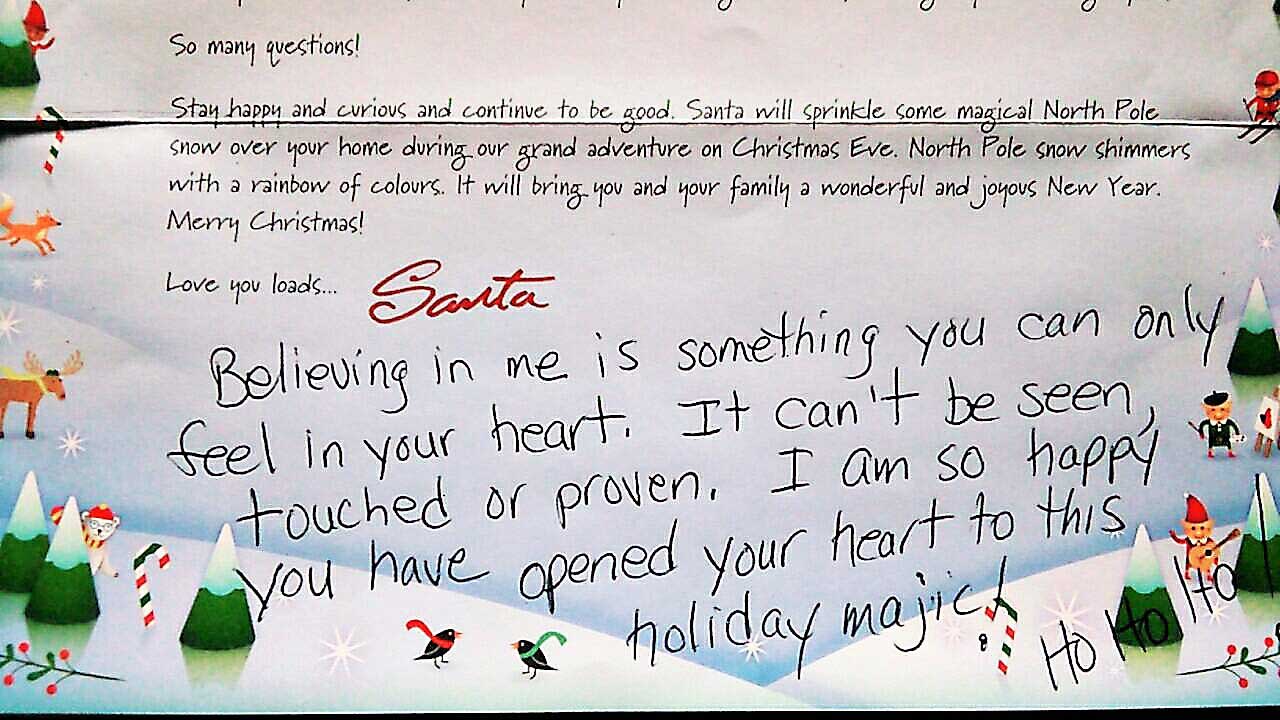 So many questions!
Stay happy and curious and continue to be good. Santa will sprinkle some magical North Pole
snow over your home during our grand adventure on Christmas Eve. North Pole snow shimmers
with a rainbow of colours. It will bring you and your family a wonderful and joyous New Year.
Merry Christmas!
Love you loads... Santa
Believing in me is something you can only
feel in your heart. It can't be seen,
touched or proven. I am so happy
you have opened your heart to this
holiday majic!
Ho Ho Ho!